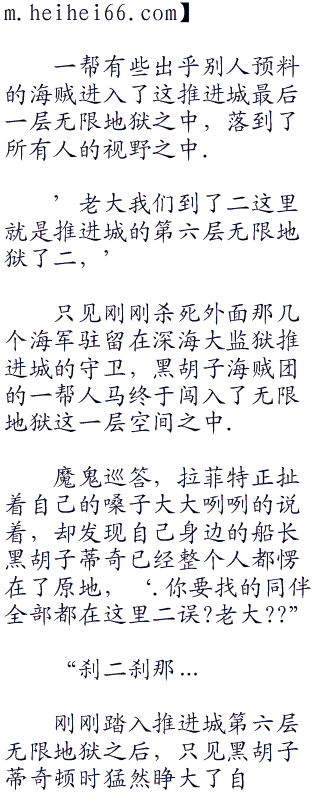 m.heihei66.com】
一帮有些出乎别人预料
的海贼进入了这推进城最后
一层无限地狱之中，落到了
所有人的视野之中.
’老大我们到了二这里
就是推进城的第六层无限地
狱了二，’
只见刚刚杀死外面那几
个海军驻留在深海大监狱推
进城的守卫，黑胡子海贼团
的一帮人马终于闯入了无限
地狱这一层空间之中.
魔鬼巡答，拉菲特正扯
着自己的嗓子大大咧咧的说
着，却发现自己身边的船长
黑胡子蒂奇已经整个人都愣
在了原地，‘.你要找的同伴
全部都在这里二误?老大??”
“刹二刹那...
刚刚踏入推进城第六层
无限地狱之后，只见黑胡子
蒂奇顿时猛然睁大了自